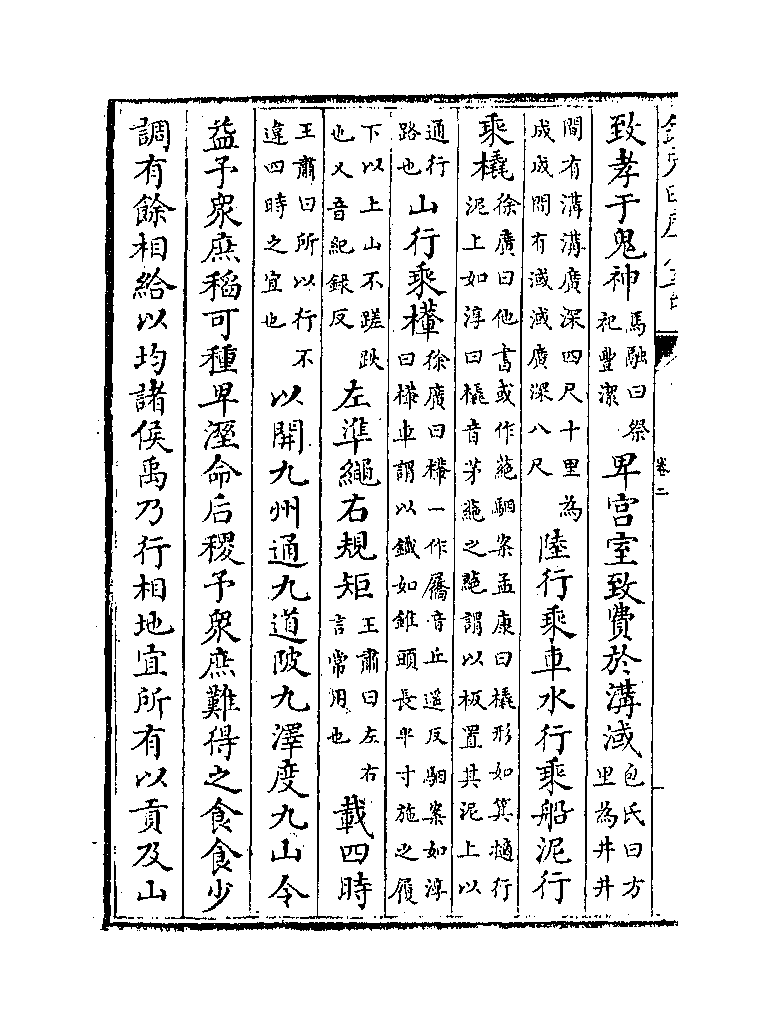 卷二
致孝于鬼神馬融曰祭祀豐潔卑宮室致費於溝淢包氏曰方里為井井
間有溝溝廣深四尺十里為成成間有淢淢廣深八尺陸行乘車水行乘船泥行
乘橇徐廣曰他書或作蕝駰案孟康曰橇形如箕擿行泥上如淳曰橇音茅蕝之蕝謂以板置其泥上以
通行路也山行乘檋徐廣曰檋一作屩音丘遥反駰案如淳曰檋車謂以鐵如錐頭長半寸施之履
下以上山不蹉跌也又音紀録反左準繩右規矩王肅曰左右言常用也載四時
王肅曰所以行不違四時之宜也以開九州通九道陂九澤度九山令
益予衆庶稻可種卑溼命后稷予衆庶難得之食食少
調有餘相給以均諸侯禹乃行相地宜所有以貢及山